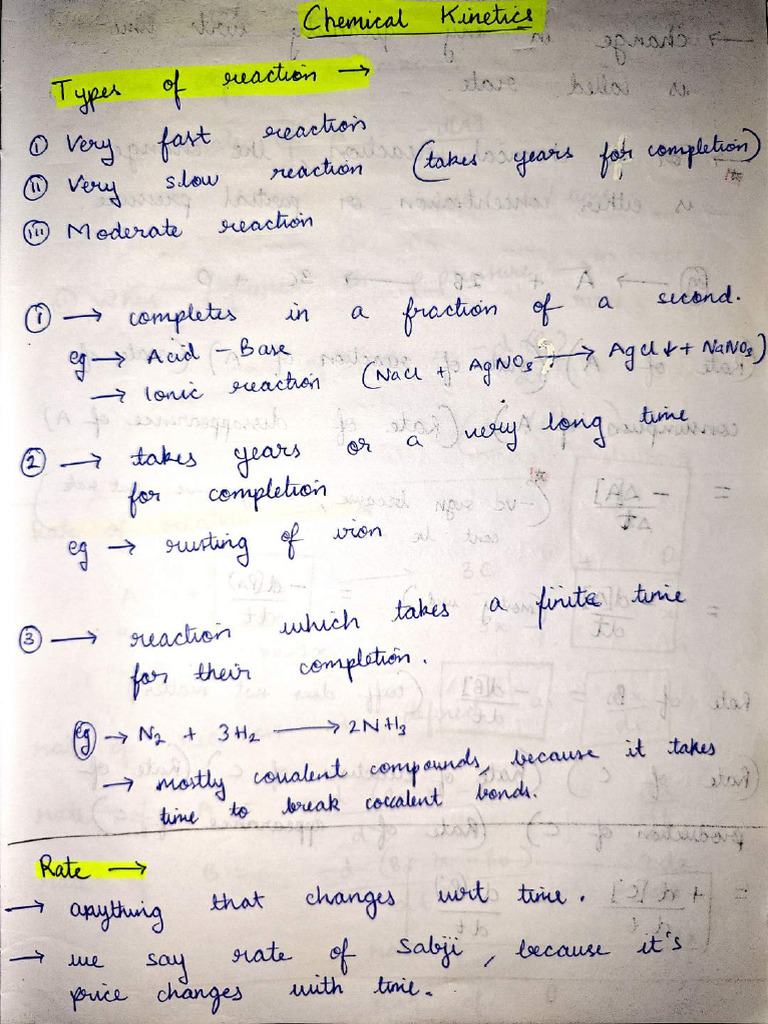 Chemical Kinetics
Types of reaction →
(i) Very fast reaction
(ii) Very slow reaction (takes years for completion)
(iii) Moderate reaction
① → completes in a fraction of a second.
eg → Acid - Base
→ Ionic reaction (NaCl + AgNO₃ → AgCl↓ + NaNO₃)
② → takes years or a very long time
for completion
eg → rusting of iron
③ → reaction which takes a finite time
for their completion.
eg → N₂ + 3H₂ → 2NH₃
→ mostly covalent compounds, because it takes
time to break covalent bonds.
Rate →
→ anything that changes wrt time.
→ we say rate of Sabji, because it's
price changes with time.